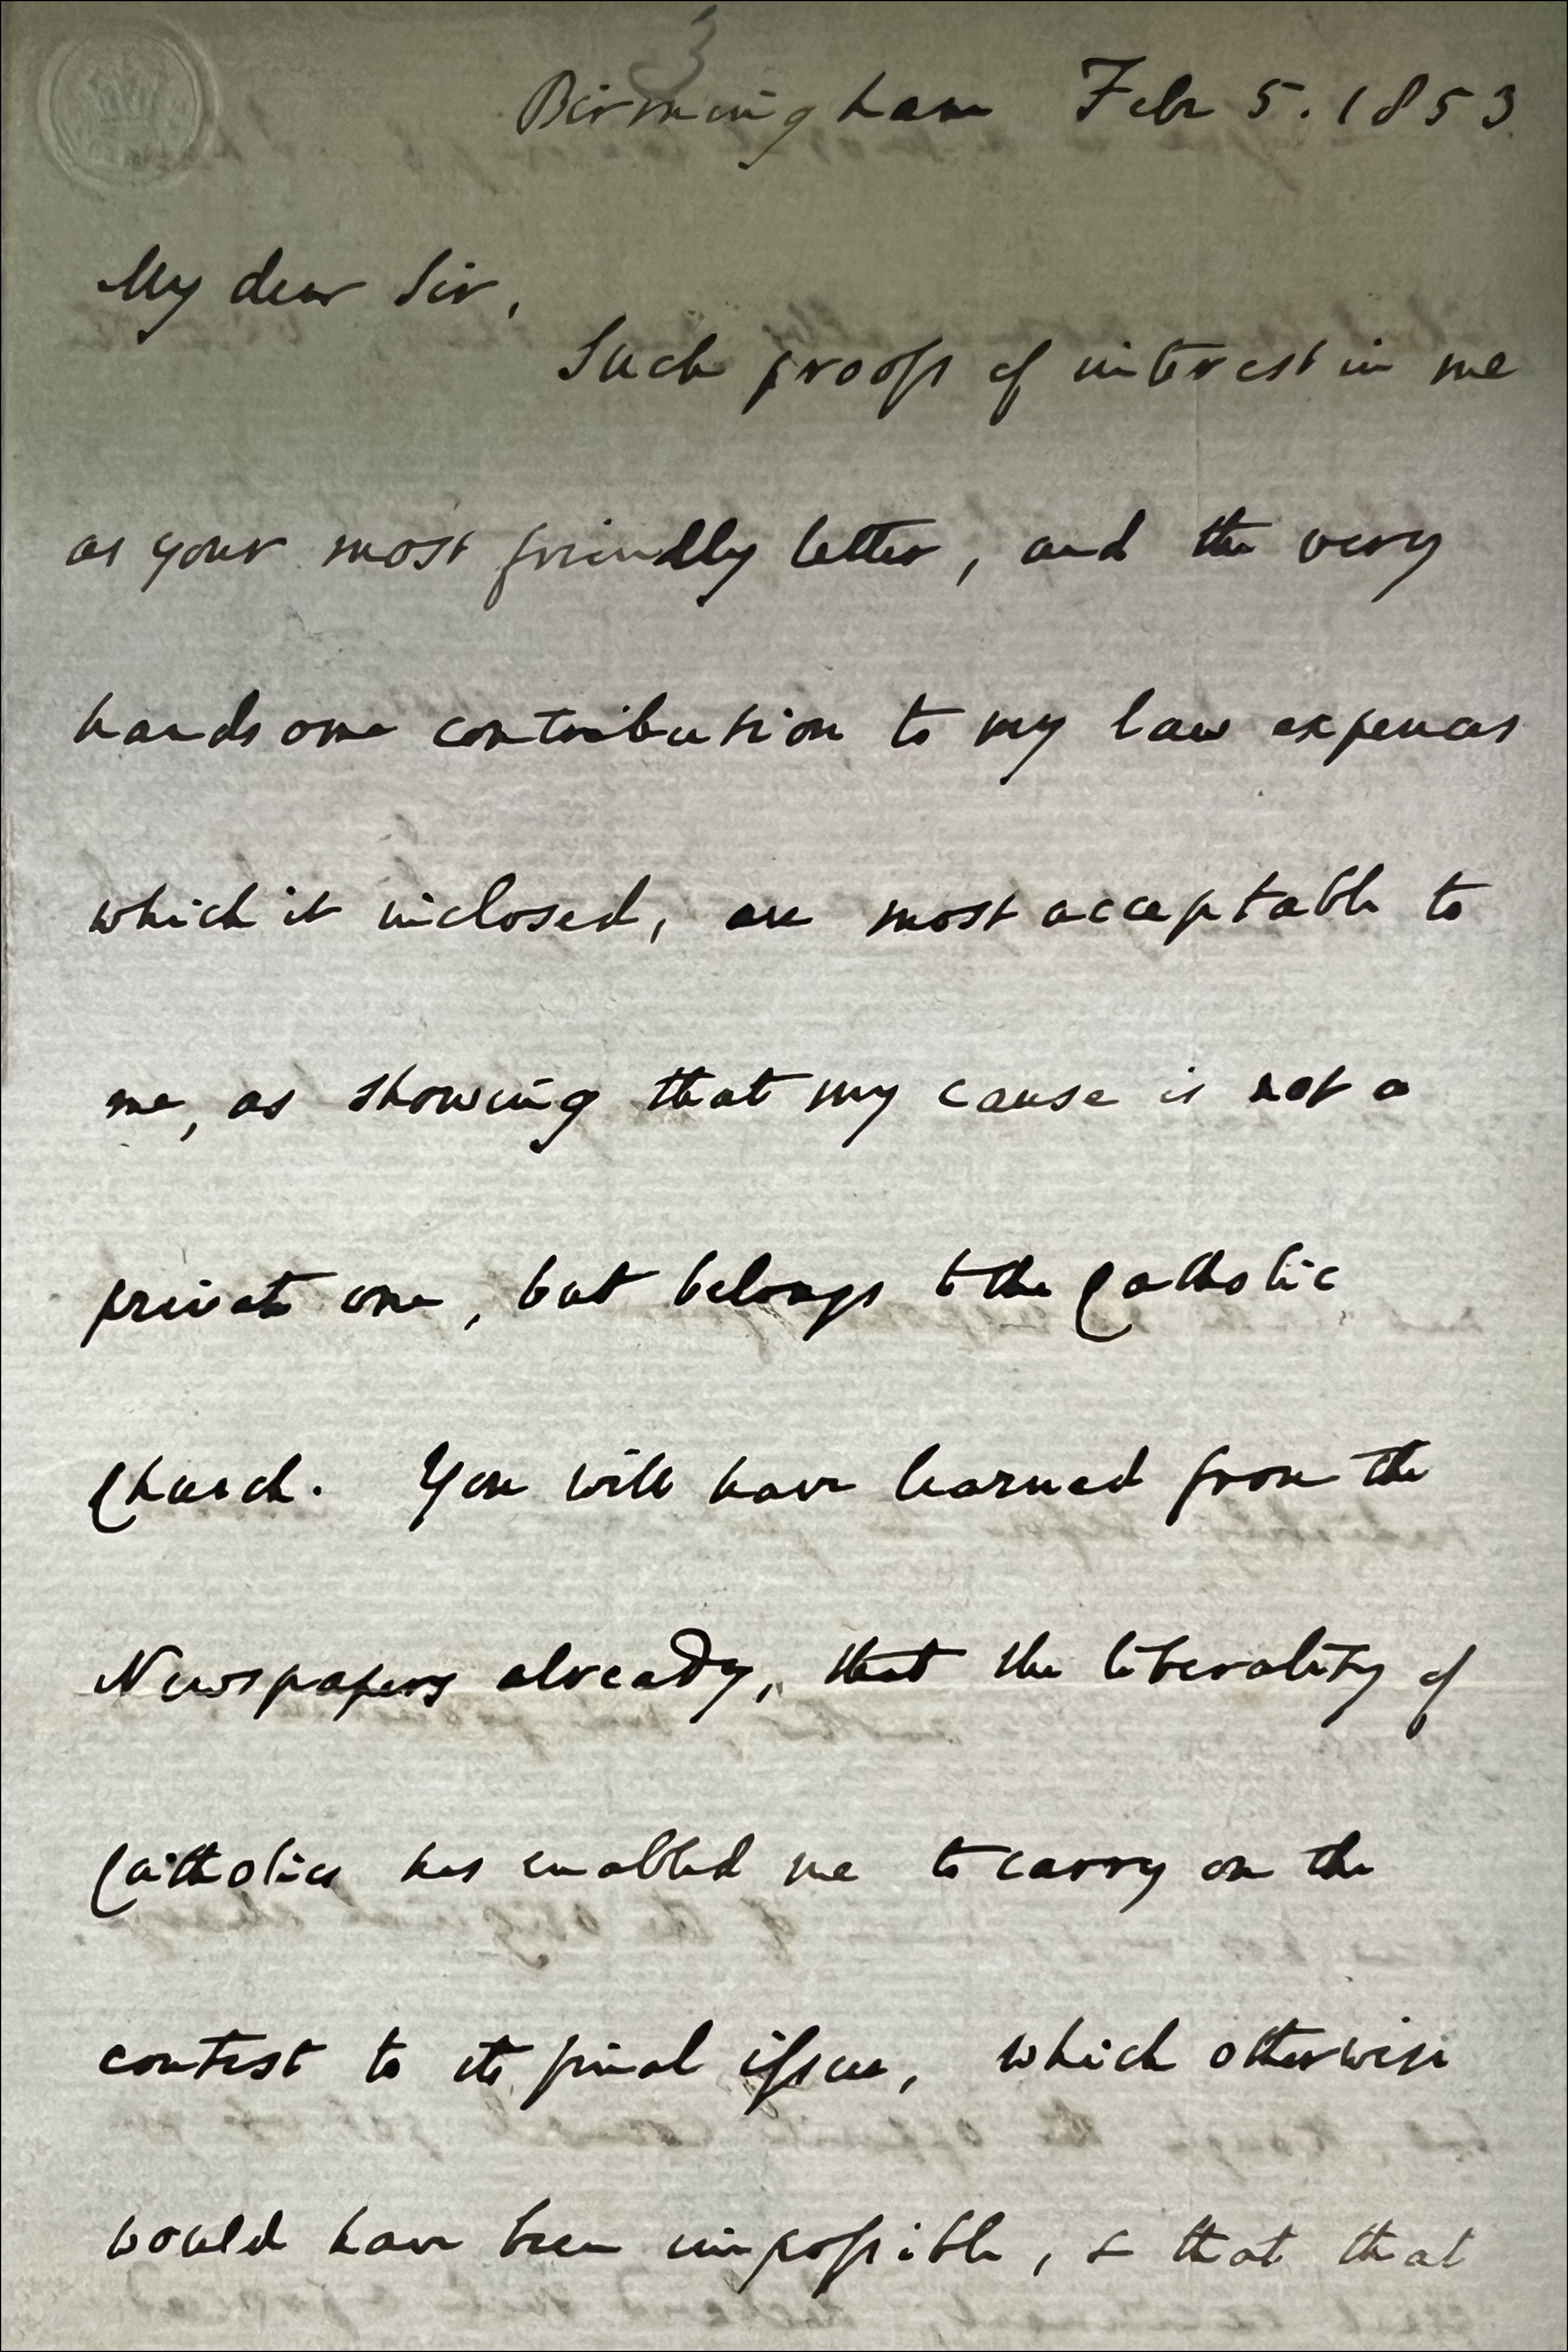 3
Birmingham Feb 5. 1853
My dear Sir,
Such proofs of interest in me
as your most friendly letter, and the very
handsome contribution to my law expenses
which it inclosed, are most acceptable to
me, as showing that my cause is not a
private one, but belongs to the Catholic
Church. You will have learned from the
Newspapers already, that the liberality of
Catholics has enabled me to carry on the
contest to its final issue, which otherwise
would have been impossible, & that that